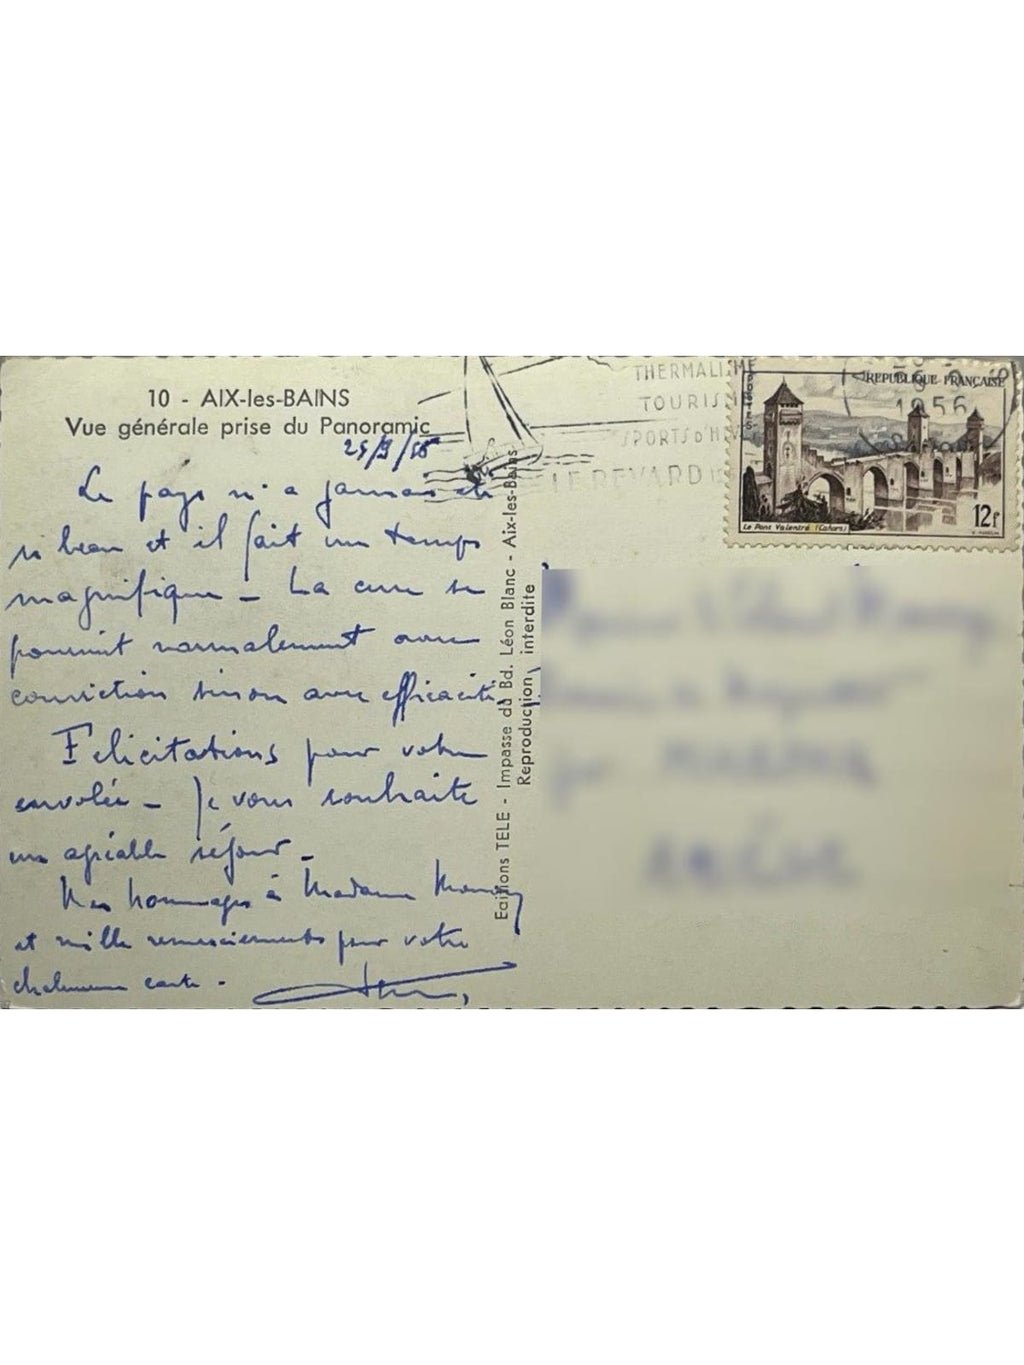 10 - AIX-les-BAINS
Vue générale prise du Panoramic
25/9/56
Le pays n'a jamais été
si beau et il fait un temps
magnifique - La cure se
poursuit normalement avec
conviction sinon avec efficacité,
Félicitations pour votre
envolée - Je vous souhaite
un agréable séjour -
Mes hommages à Madame
et mille remerciements pour votre
chaleureuse carte -
Editions TELE - Impasse du Bd. Léon Blanc - Aix-les-Bains
Reproduction interdite
THERMALISME
TOURISME
SPORTS D'HIVER
LE REVARD
1956
REPUBLIQUE FRANÇAISE
Le Pont Valentré (Cahors)
12f